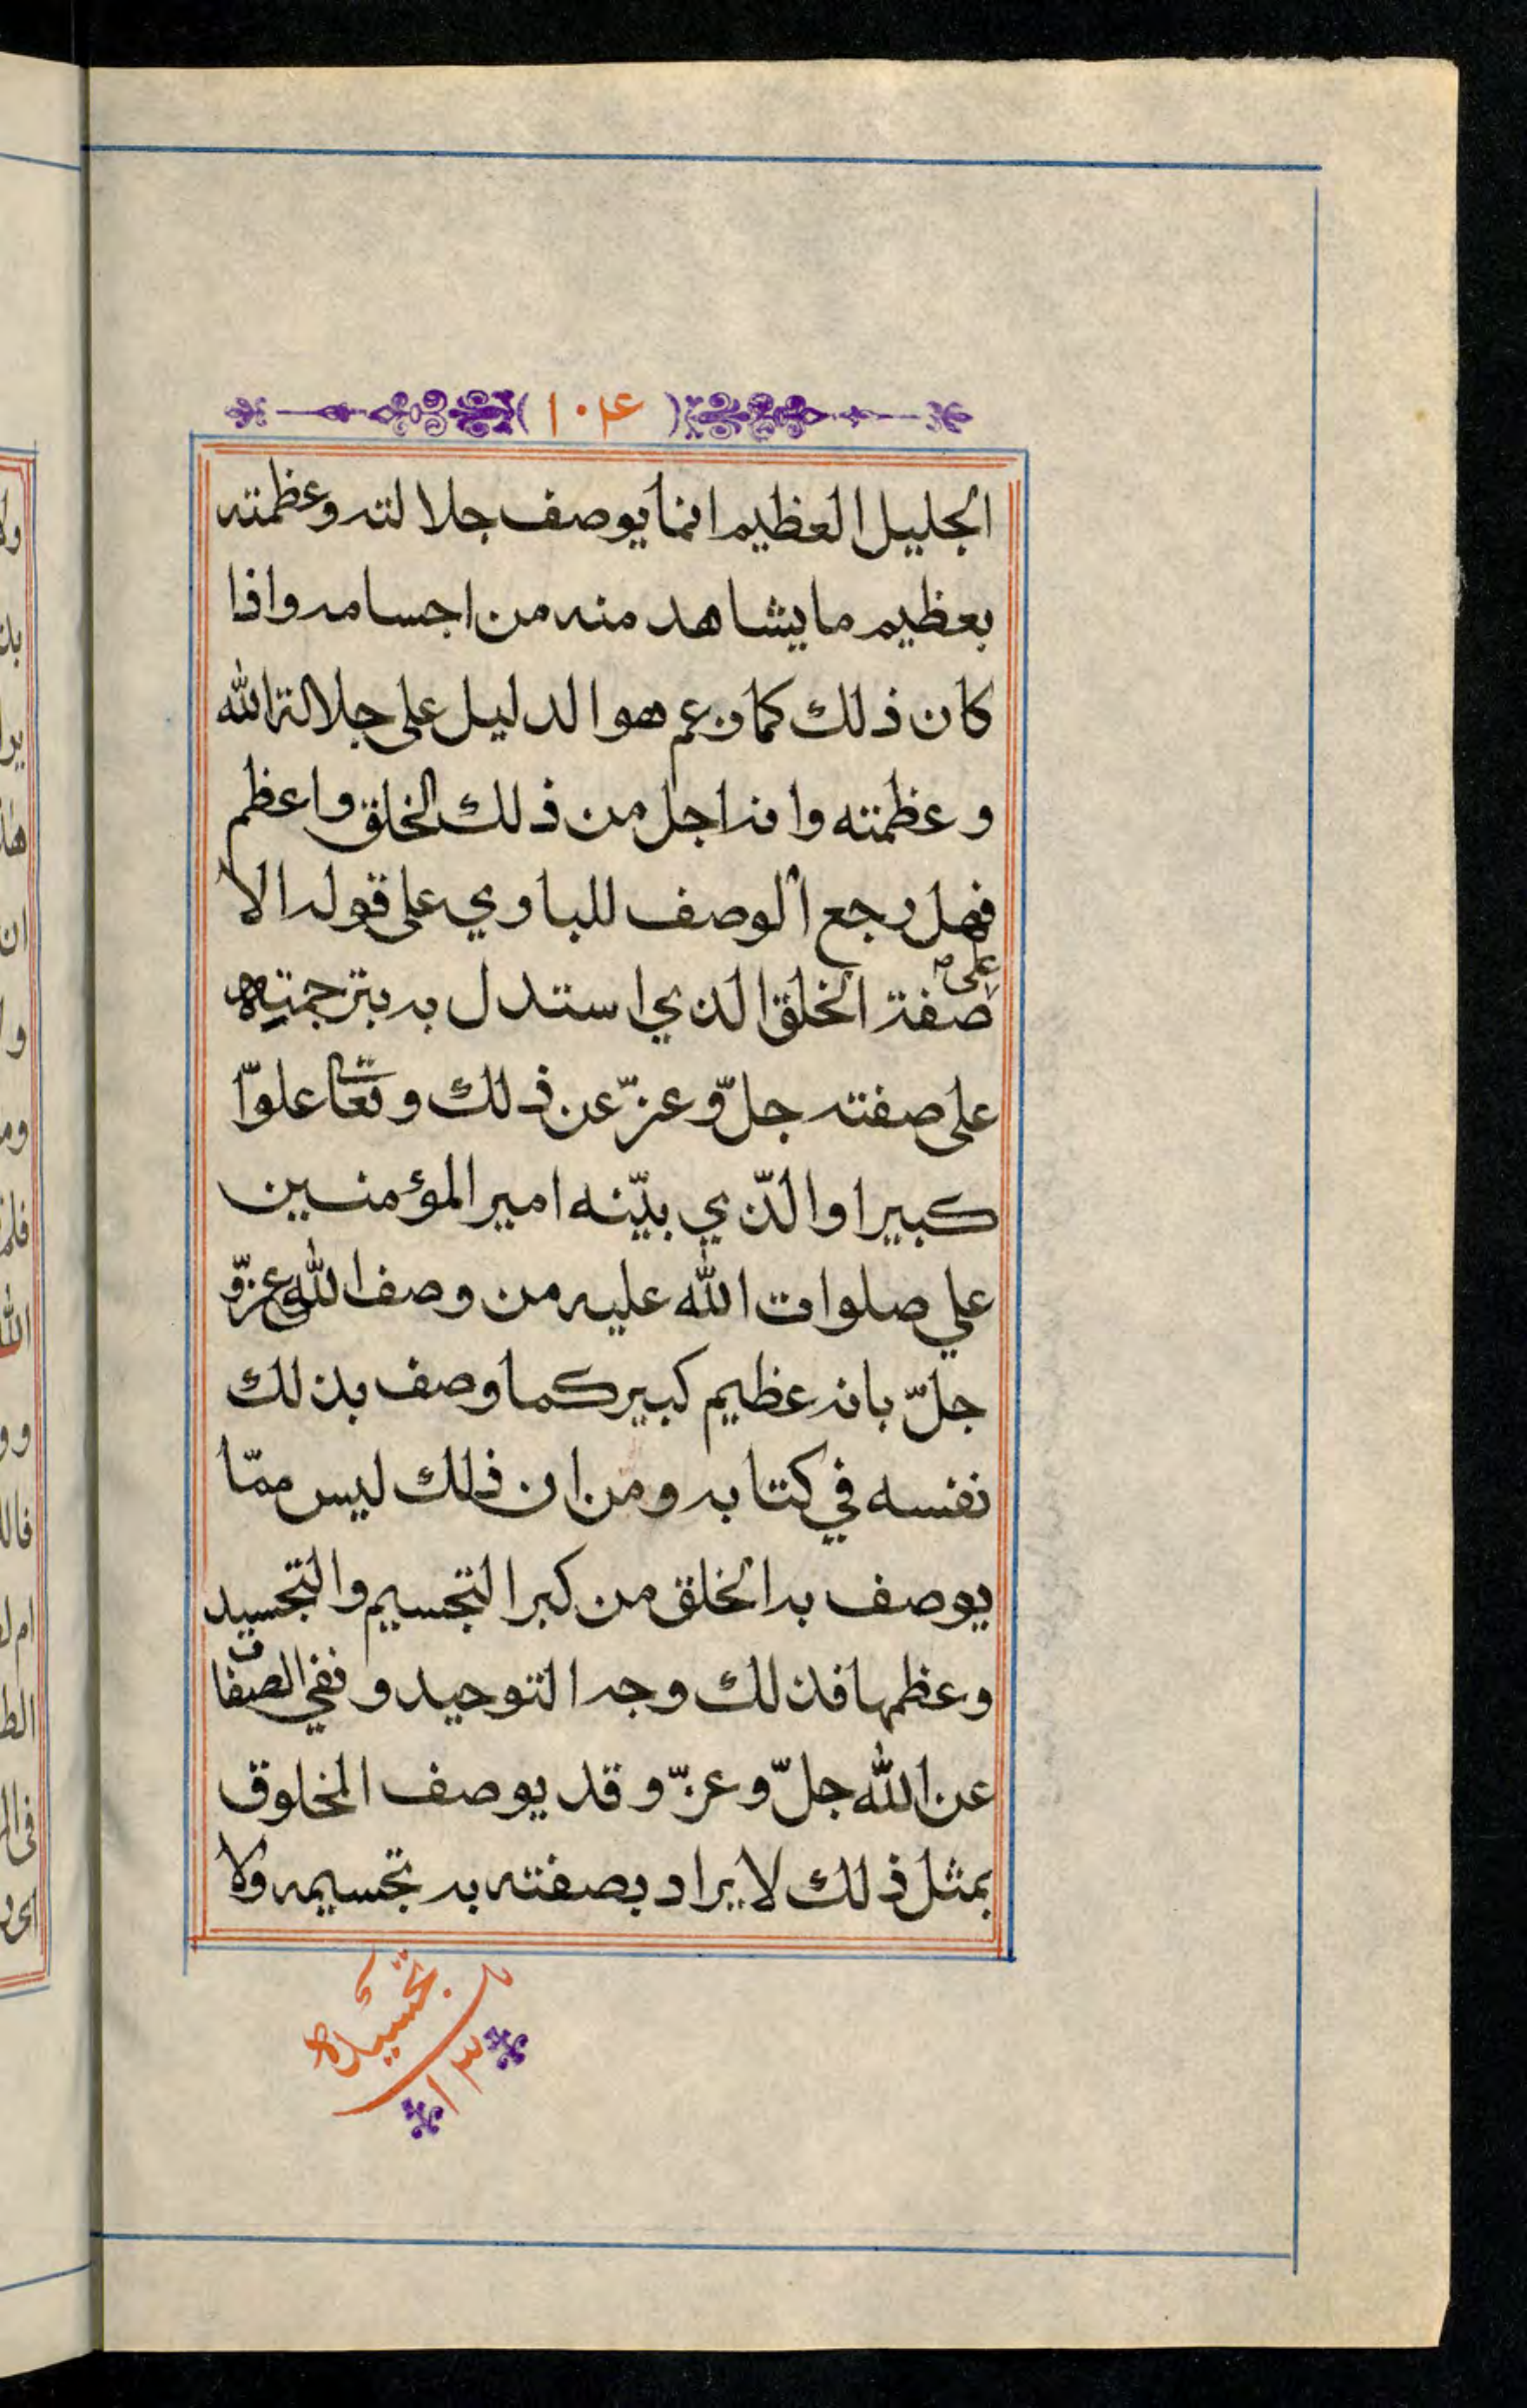 ١٠٤
الجليل العظيم انما يوصف جلالته وعظمته
بعظيم ما يشاهد منه من اجسامه واذا
كان ذلك كما زعم هو الدليل على جلالة الله
وعظمته وانه اجل من ذلك الخلق واعظم
فهل رجع الوصف للباري على قوله الا
على
صفة الخلق الذي استدل به بترجمته
على صفته جلّ وعزّ عن ذلك وتعا علوّا
كبيرا والذّي بيّنه امير المؤمنين
علي صلوات الله عليه من وصف الله عزّ و
جلّ بانه عظيم كبير كما وصف بذلك
نفسه في كتابه ومن ان ذلك ليس ممّا
يوصف به الخلق من كبر التجسيم والتجسيد
وعظمها فذلك وجه التوحيد ونفي الصفات
عن الله جلّ وعزّ وقد يوصف المخلوق
بمثل ذلك لا يراد بصفته به تجسيمه ولا
١٣